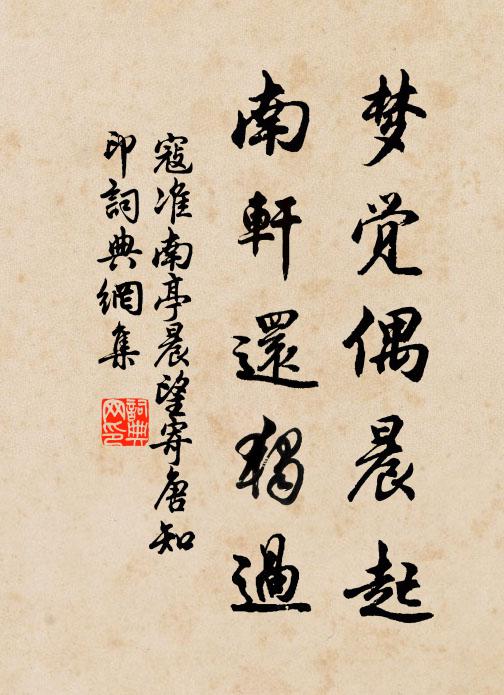 梦觉偶晨起
南軒還獨過
寇准南亭晨望寄唐知
印詞典網集
詞典
网印